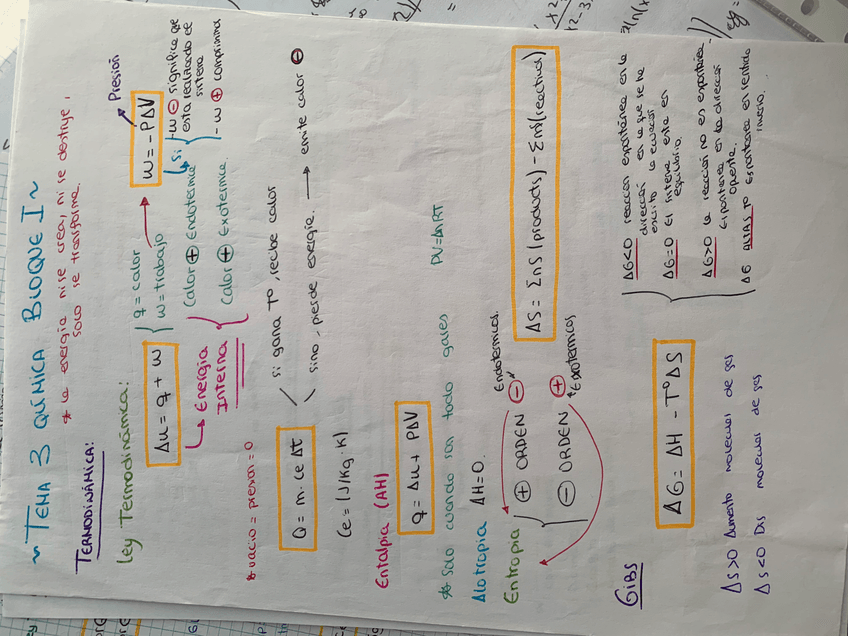 ~ TEMA 3 QUÍMICA BLOQUE I ~
* la energía ni se crea, ni se destruye,
solo se transforma.
TERMODINÁMICA:
Ley Termodinámica:
Δu = q + w
q = calor
w = trabajo
w = -PΔV
Presión
Si
-w ⊖ significa que
esta realizando el
sistema
-w ⊕ comprimina
Energía
Interna
Calor ⊕ Endotermica
Calor ⊕ Exotermica
* vacio = presion = 0
Q = m · ce Δt
si gana Tº, recibe calor
sino, pierde energia. → emite calor ⊖
Ce = (J/Kg · K)
Entalpia (ΔH)
q = Δu + PΔV
* Solo cuando son todo gases
PV=ΔnRT
Alotropia ΔH=0.
Entropia
⊕ ORDEN ⊖
Endotermicos
⊖ ORDEN ⊕
Exotermicos
ΔS = Σns (products) - Σns (reactivos)
GIBS
ΔG = ΔH - TºΔS
ΔG<0 reacción espontánea en la
dirección en la que se ha
escrito la ecuacion
ΔG=0 El sistema esta en
equilibrio.
ΔG>0 la reacción no es espontánea.
Espontanea en la direccion
opuesta.
ΔG ALTAS Tº Espontanea en sentido
inverso.
ΔS>0 Aumento moleculas de gas
ΔS<0 Dis moleculas de gas